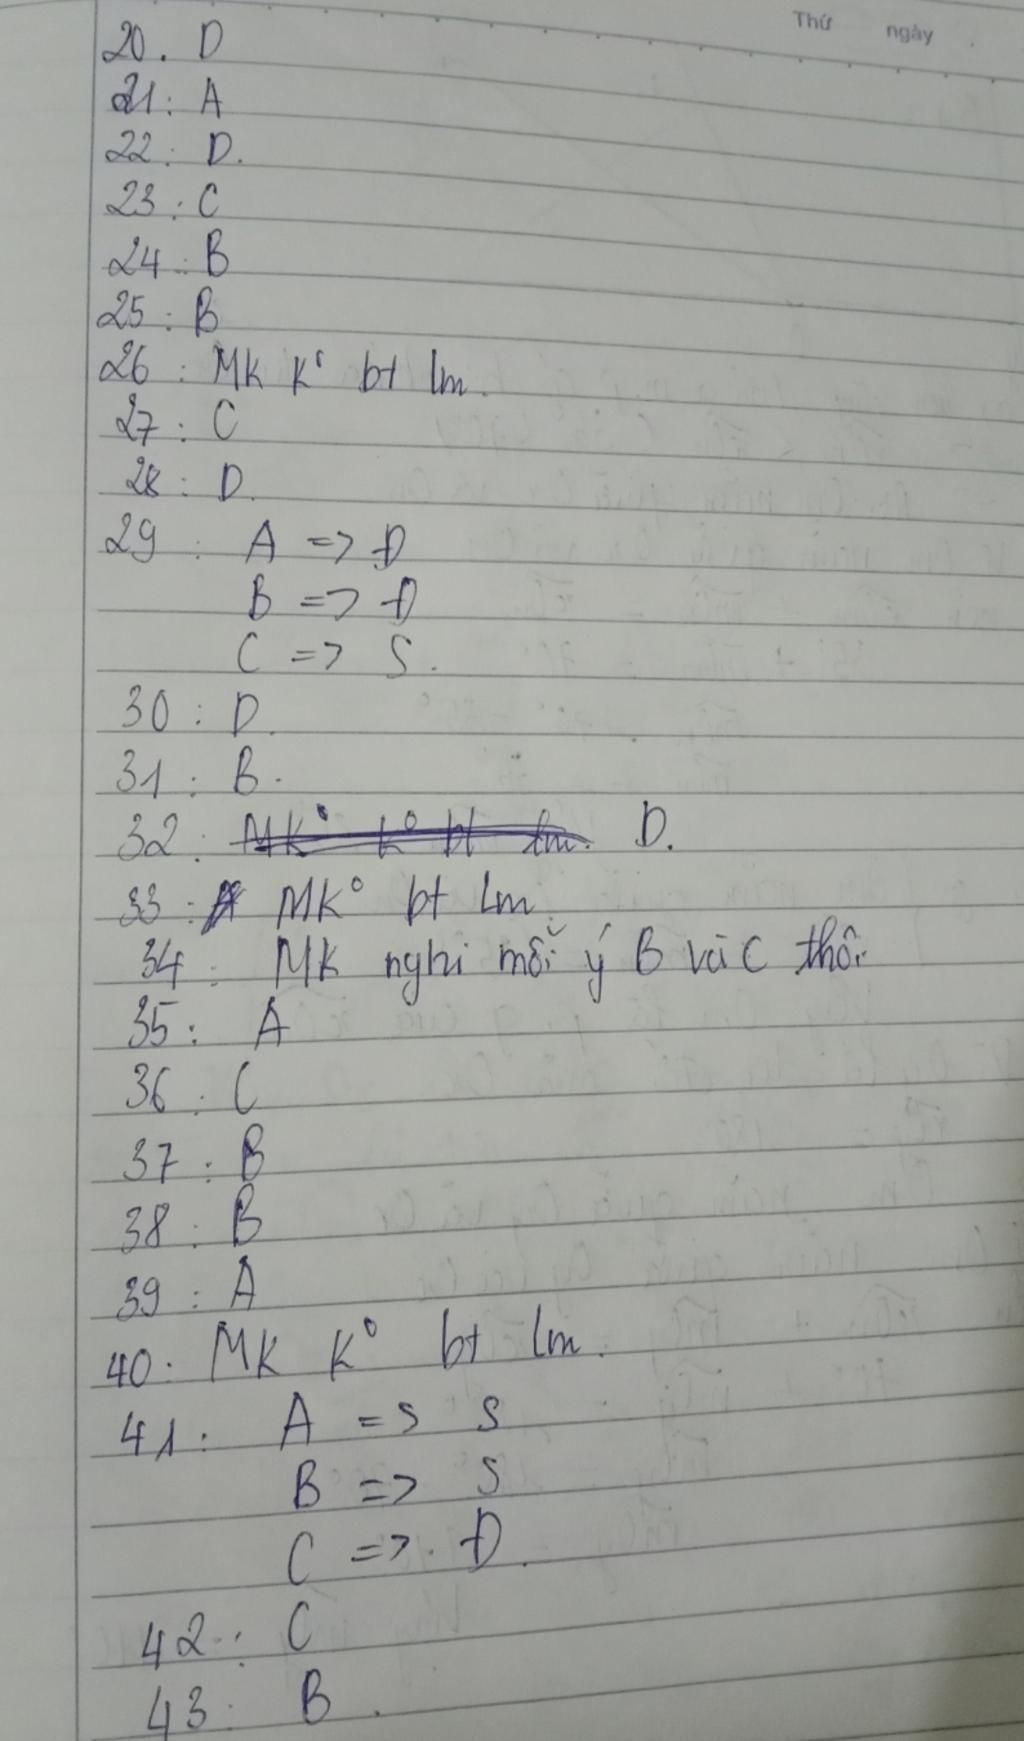 Thứ ngày
20. D
21: A
22: D.
23: C
24: B
25: B
26: MK K° bt lm.
27: C
28: D.
29: A => Đ
B => Đ
C => S.
30: D.
31: B.
32: MK° K° bt lm. D.
33: MK° bt lm
34: MK nghi mỗi ý B và C thôi
35: A
36: C
37: B
38: B
39: A
40: MK K° bt lm.
41: A => S
B => S
C => Đ.
42: C
43: B.